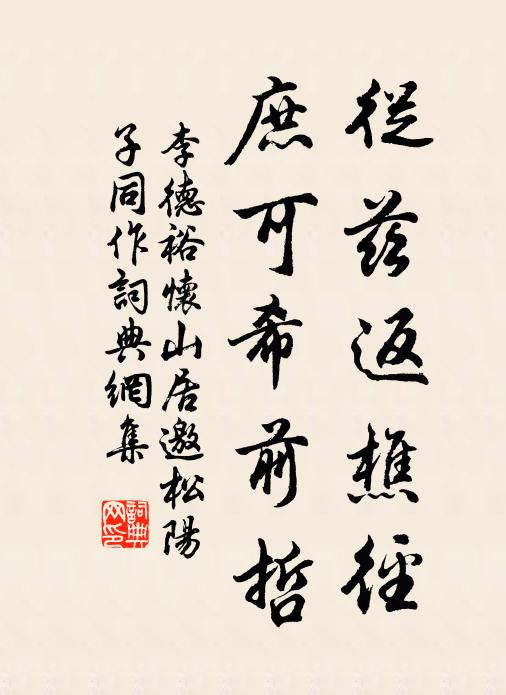 從茲返樵徑
庶可希前哲
李德裕懷山居邀松陽
子同作詞典網集
詞典
网印